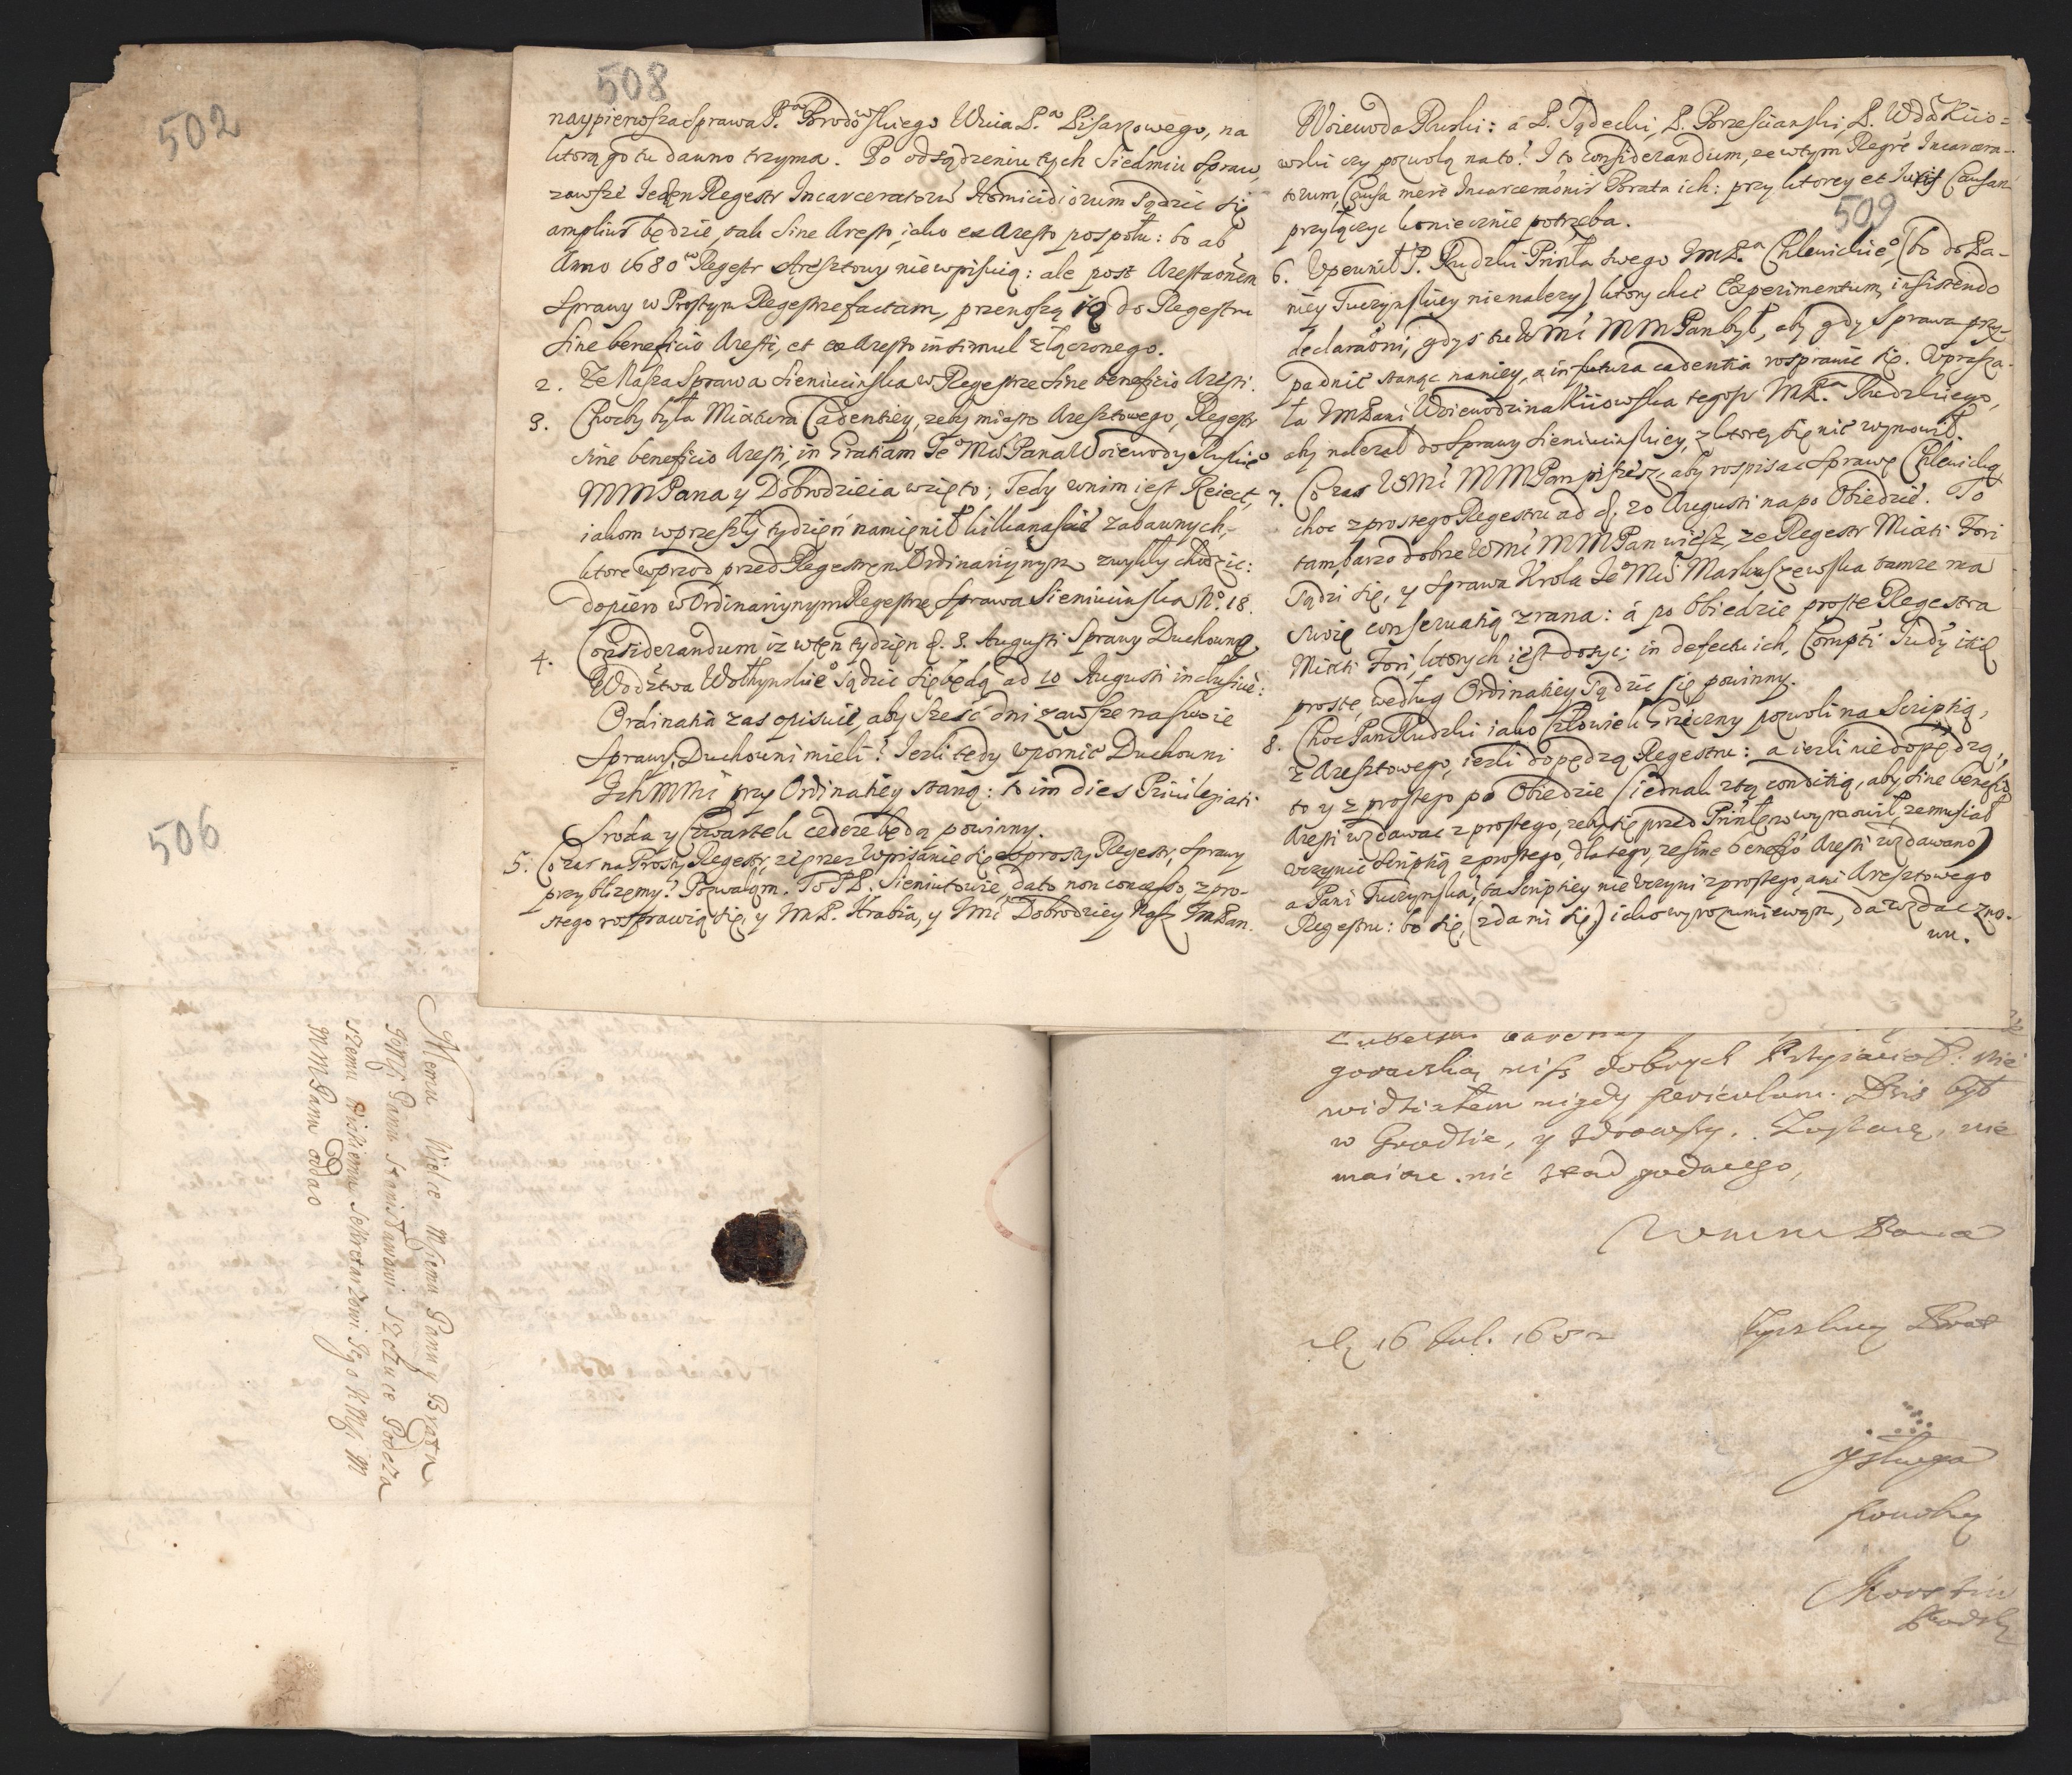 502
508
naypierwsza Sprawa P.ᵃ Brodowskiego Wuia P.ᵃ Pisarzowego, na
ktorą go tu dawno trzyma. Po odsądzeniu tych Siedmiu Spraw,
zawsze Ieden Regestr Incarceratorũ Homicidiorum Sądzić się
amplius będzie, tak Sine Aresto, iako ex Aresto pospołu: bo ab
Anno 1680 Regestr Aresztowy nie wpisuią: ale post Arestaõnem
Sprawy w Prostym Regestrze factam, przenoszą ią do Regestru
Sine beneficio Aresti, et ex Aresto insimul złączonego.
2. Ze Nasza Sprawa Sieniucinska w Regestrze Sine beneficio Aresti.
3. Choćby była Mixtura Cadentiey, zeby miasto Aresztowego, Regestr
sine beneficio Aresti, in Gratiam Je͠o Mći Pana Woiewody Ruskie͠o
MM Pana y Dobrodzieia wzięto; Tedy w nim iest Reiect,
iakom w przeszły tydzień namienił kilkanaście zabawnych,
ktore wprzod przed Regestrem Ordinaryinym zwykły chodzić:
dopiero w Ordinaryinym Regestrze Sprawa Sieniucinska Nº. 18.
4. Considerandum iz w ten tydzien d. 3. Augusti Sprawy Duchowne
Wodztwa Wołhynskie͠o Sądzić się będą ad 10 Augusti inclusivè:
Ordinatia zas opisuie, aby Sześć dni zawsze na swoie
Sprawy, Duchowni mieli? Iezli tedy upornie Duchowni
Ich Mći przy Ordinatiey staną: to im dies Privilegiati
Sroda y Czwartek cedere będą powinny.
5. Co zas na Prosty Regestr, ze przez Wpisanie się w prosty Regestr, Sprawy
przybliżemy? Pozwalam. To PP. Sieniutowie, dato non concesso, z pro-
stego rosprawią się, y Im P. Hrabia, y Imć Dobrodziey Nasz Im Pan.
Woiewoda Ruski: á P. Sądecki, P. Brzescianski, P. Wda Kiio=
wski czy pozwolą na to? I to considerandum, ze w tym Regre Incarcera-
torum, Causa merè Incarceraõnis Brata ich: przy ktorey et Iuris Causam
509
przyłączyc koniecznie potrzeba.
6. Upewnił P. Rudzki Prinła swego Im P.ᵃ Chlewickie͠o, (bo do Pa-
niey Tuczynskiey nienalezy) ktory chce Experimentum, insistendo
declaraõni, gdys tu W Mć MM Pan był, aby gdy Sprawa przy-
padnie stanąc na niey, a in futura cadentia rosprawić się. Uprasza-
ła Im Pani Woiewodzina Kiiowska tegosz Im P.ᵃ Rudzkiego,
aby nalezał do Sprawy Sieniucinskiey, z ktorey się nie wymowił.
7. Co zas W Mć MM Pan piszesz, aby rospisac Sprawę Chlewicką
choc z prostego Regestru ad d. 20 Augusti na po Obiedzie. To
tam, barzo dobrze W Mć MM Pan wiesz, ze Regestr Mixti Fori
Sądzi się, y Sprawa Krola Je͠o Mći Markuszewska tamze ma
swoię conservatią z rana: á po Obiedzie proste Regestra
Mixti Fori, ktorych iest dosyc; in defectu ich, Compti Iudy itie
proste, według Ordinatiey Sądzic się powinny.
8. Choc Pan Rudzki iako Człowiek Grzeczny pozwoli na Scriptią,
z Aresztowego, iezli dopędzą Regestru: a iezli nie dopędzą,
to y z prostego po Obiedzie (iednak z tą conditią, aby Sine benefic͠o
Aresti wzdawac z prostego, zeby się przed Prinłem wymowił, ze musiał
uczynić Scriptią z prostego, dla tego, ze sine benef͠o Aresti wzdawano)
a Pani Tuczynska, ta Scriptiey nie uczyni z prostego, ani Aresztowego
Regestru: bo się, (zda mi się,) iako wyrozumiewam, da wzdac zno-
wu.
506
Memu Wielce Msciemu Panu y Bratu
Je͠o Mści Panu Stanisławowi Szczuce Podcza
szemu Wiskiemu Sekretarzowi Jego K Mści M
M M Panu oddac
gorączką nisz dobrych Przyjacioł. Nie
widziałem nigdy periculum. Dzis był
w Grodzie, y zdrowszy. Zostaię, nie
maiąc nic stąd godnego,
W M M M Pana
D. 16 Jul. 1682
Zyczliwy Brat
y sługa
powolny
Morstin